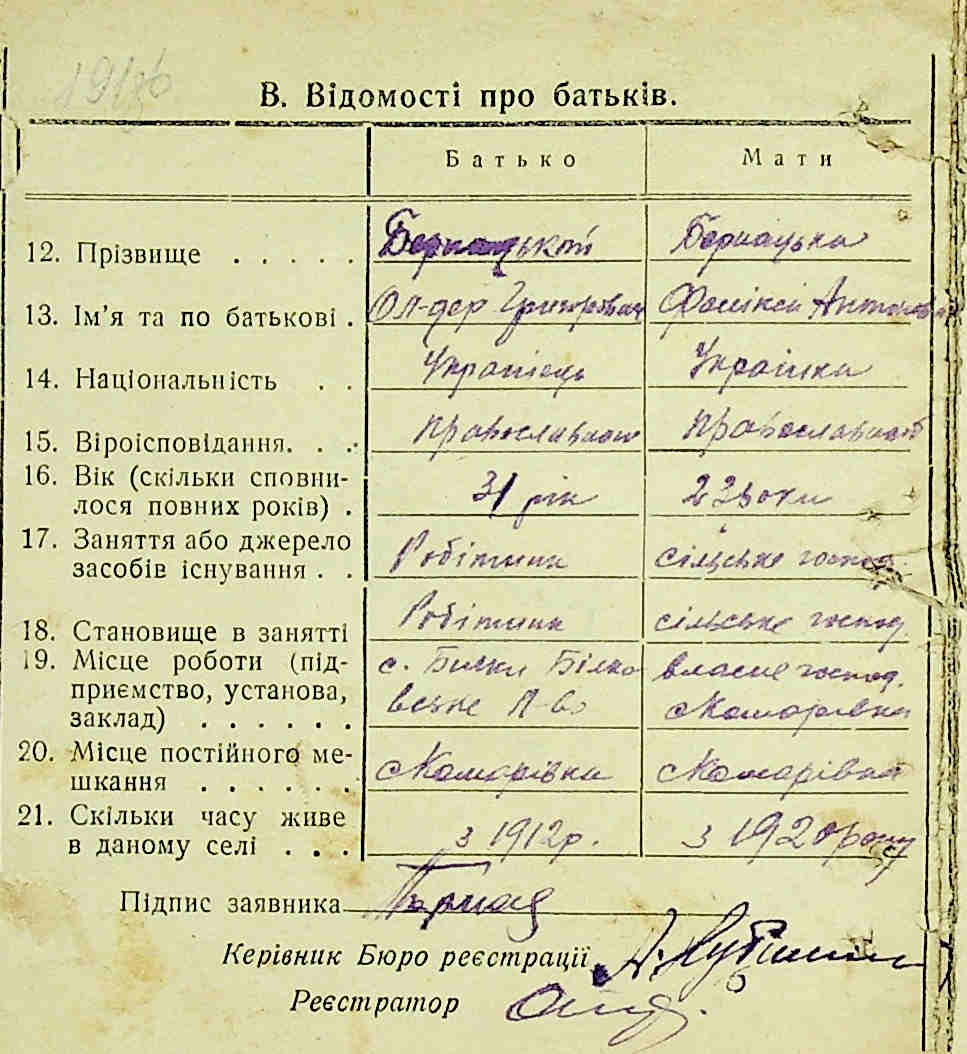 В. Відомості про батьків.
Батько Мати
12. Прізвище . . . . . Бернацький Бернацька
13. Ім'я та по батькові . Ол-дер Григорович Антонівна
14. Національність . . Українець Українка
15. Віроісповідання. . . Православного Православної
16. Вік (скільки сповни-
лося повних років) . 31 рік 23 роки
17. Заняття або джерело
засобів існування . . Робітник сільське господ.
18. Становище в занятті Робітник сільське господ.
19. Місце роботи (під- с. Білки Білко власне господ.
приємство, установа, вське
заклад) . . . . . .
20. Місце постійного ме-
шкання . . . . . .
21. Скільки часу живе
в даному селі . . . з 1912р. з 1920 року
Підпис заявника
Керівник Бюро реєстрації
Реєстратор